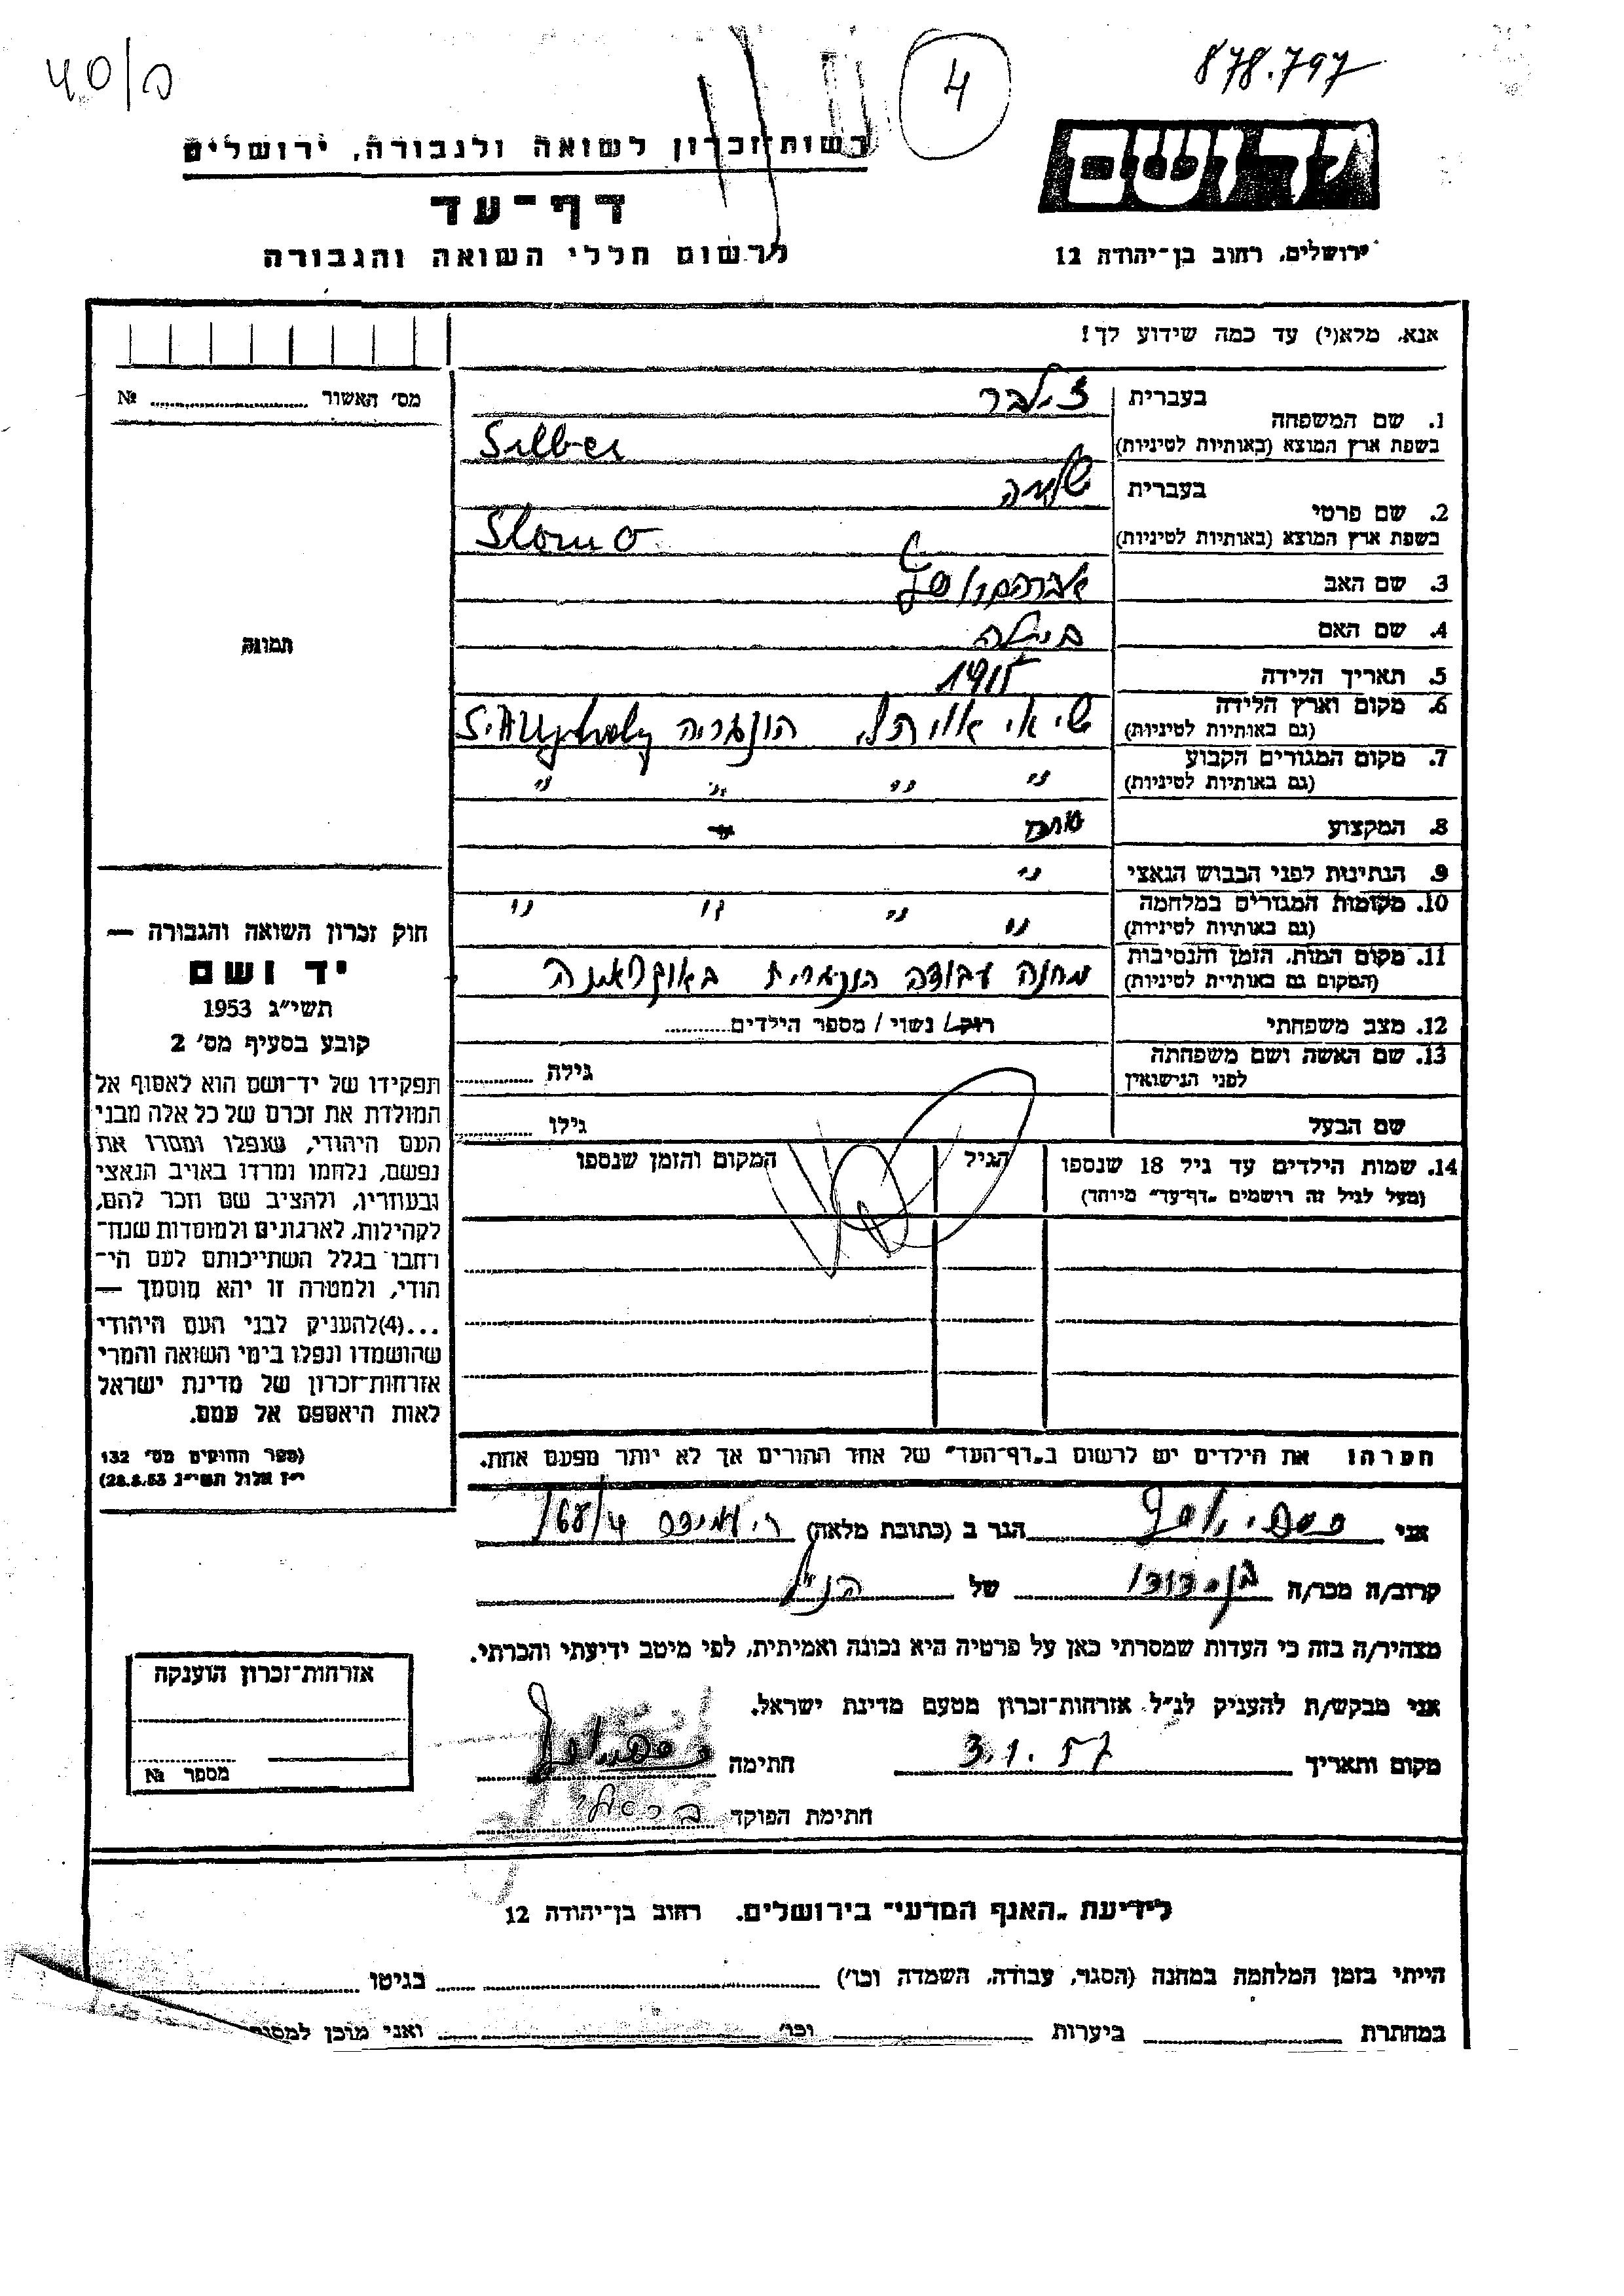 40/ס
4
878.797
רשות-זכרון לשואה ולגבורה, ירושלים
דף-עד
לרשום חללי השואה והגבורה
ידושם
ירושלים, רחוב בן-יהודה 12
אנא, מלא(י) עד כמה שידוע לך!
מס׳ האשור № 
1. שם המשפחה בעברית זילבר
בשפת ארץ המוצא (באותיות לטיניות) Silber
2. שם פרטי בעברית שלמה
בשפת ארץ המוצא (באותיות לטיניות) Slomo
3. שם האב
4. שם האם בילה
5. תאריך הלידה 1915
6. מקום וארץ הלידה הונגריה
(גם באותיות לטיניות)
7. מקום המגורים הקבוע " " " "
(גם באותיות לטיניות)
8. המקצוע
9. הנתינות לפני הכבוש הנאצי "
10. מקומות המגורים במלחמה " " " "
(גם באותיות לטיניות)
11. מקום המות, הזמן והנסיבות מחנה עבודה הונגרית באוקראינה
(המקום גם באותיית לטיניות)
12. מצב משפחתי רוק / נשוי / מספר הילדים
13. שם האשה ושם משפחתה גילה
לפני הנישואין
שם הבעל גילו
14. שמות הילדים עד גיל 18 שנספו הגיל המקום והזמן שנספו
(מעל לגיל זה רושמים „דף-עד״ מיוחד)
תמונה
חוק זכרון השואה והגבורה —
יד ושם
תשי״ג 1953
קובע בסעיף מס׳ 2
תפקידו של יד-ושם הוא לאסוף אל
המולדת את זכרם של כל אלה מבני
העם היהודי, שנפלו ומסרו את
נפשם, נלחמו ומרדו באויב הנאצי
ובעוזריו, ולהציב שם וזכר להם,
לקהילות, לארגונים ולמוסדות שנח-
רבו בגלל השתייכותם לעם הי-
הודי, ולמטרה זו יהא מוסמך —
...(4)להעניק לבני העם היהודי
שהושמדו ונפלו בימי השואה והמרי
אזרחות-זכרון של מדינת ישראל
לאות היאספם אל עמם.
(ספר החוקים מס׳ 132
י״ז אלול תשי״ג 28.8.53)
חערהו את הילדים יש לרשום ב„דף-העד״ של אחד ההורים אך לא יותר מפעם אחת.
אני הגר ב (כתובת מלאה) 168/4
קרוב/ה מכר/ה בן-דודו של הנ״ל
מצהיר/ה בזה כי העדות שמסרתי כאן על פרטיה היא נכונה ואמיתית, לפי מיטב ידיעתי והכרתי.
אני מבקש/ת להעניק לנ״ל אזרחות-זכרון מטעם מדינת ישראל.
מקום ותאריך 3.1.57 חתימה
חתימת הפוקד
אזרחות-זכרון הוענקה
מספר №
לידיעת „האגף המדעי״ בירושלים, רחוב בן-יהודה 12
הייתי בזמן המלחמה במחנה (הסגר, עבודה, השמדה וכו׳) בגיטו
במחתרת ביערות וכו׳ ואני מוכן